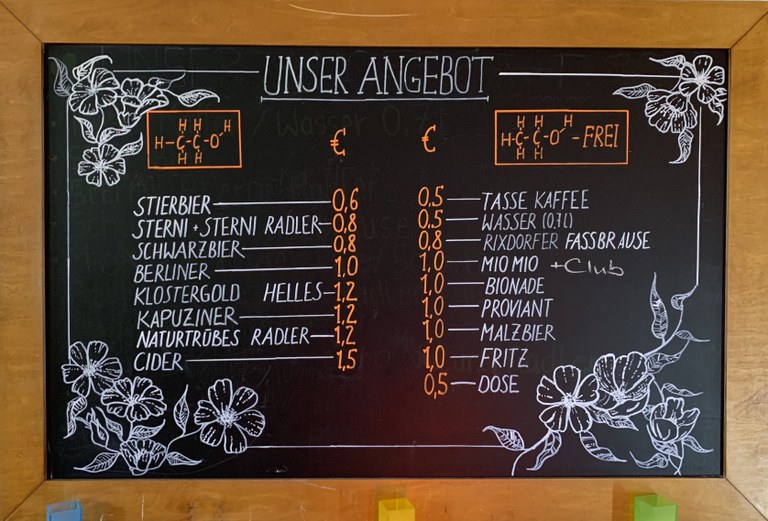 UNSER ANGEBOT
H H H
H-C-C-O
H H
€
STIERBIER 0,6
STERNI + STERNI RADLER 0,8
SCHWARZBIER 0,8
BERLINER 1,0
KLOSTERGOLD HELLES 1,2
KAPUZINER 1,2
NATURTRÜBES RADLER 1,2
CIDER 1,5
H H H
H-C-C-O -FREI
H H
€
0,5 TASSE KAFFEE
0,5 WASSER (0,7L)
0,8 RIXDORFER FASSBRAUSE
1,0 MIO MIO + Club
1,0 BIONADE
1,0 PROVIANT
1,0 MALZBIER
1,0 FRITZ
0,5 DOSE